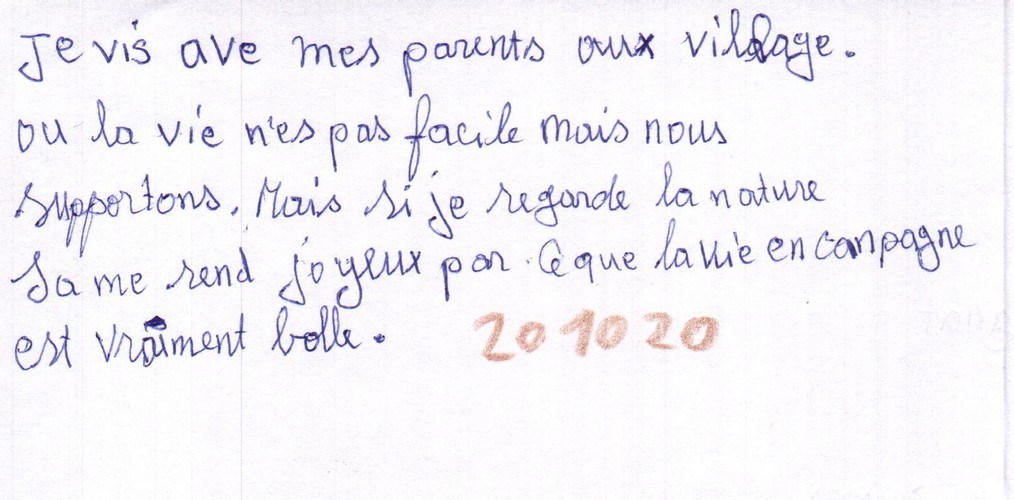 Je vis ave mes parents aux village.
ou la vie n'es pas facile mais nous
supportons. Mais si je regarde la nature
Sa me rend joyeux par ce que la vie en campagne
est vraiment belle. 20 10 20